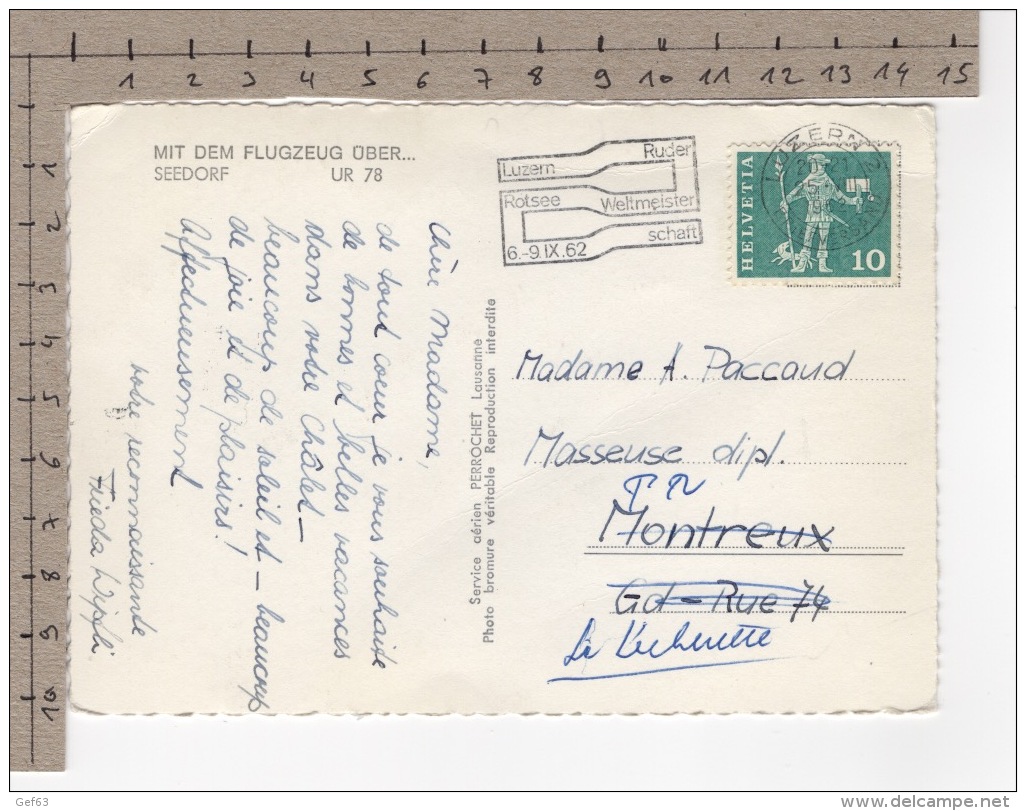 1 2 3 4 5 6 7 8 9 10 11 12 13 14 15
1
2
3
4
5
6
7
8
9
10
MIT DEM FLUGZEUG ÜBER...
SEEDORF UR 78
Luzern Ruder
Rotsee Weltmeister
schaft
6.-9.IX.62
LUZERN
HELVETIA
10
Chère Madame,
de tout coeur je vous souhaite
de bonnes et belles vacances
dans votre Châlet –
beaucoup de soleil et – beaucoup
de joie et de plaisirs!
Affectueusement
votre reconnaissante
Frieda Wipfli
Service aérien PERROCHET Lausanne
Photo bromure véritable Reproduction interdite
Madame A. Paccaud
Masseuse dipl.
Montreux
Gd-Rue 74
La Lécherette
Gef63
delcampe.net